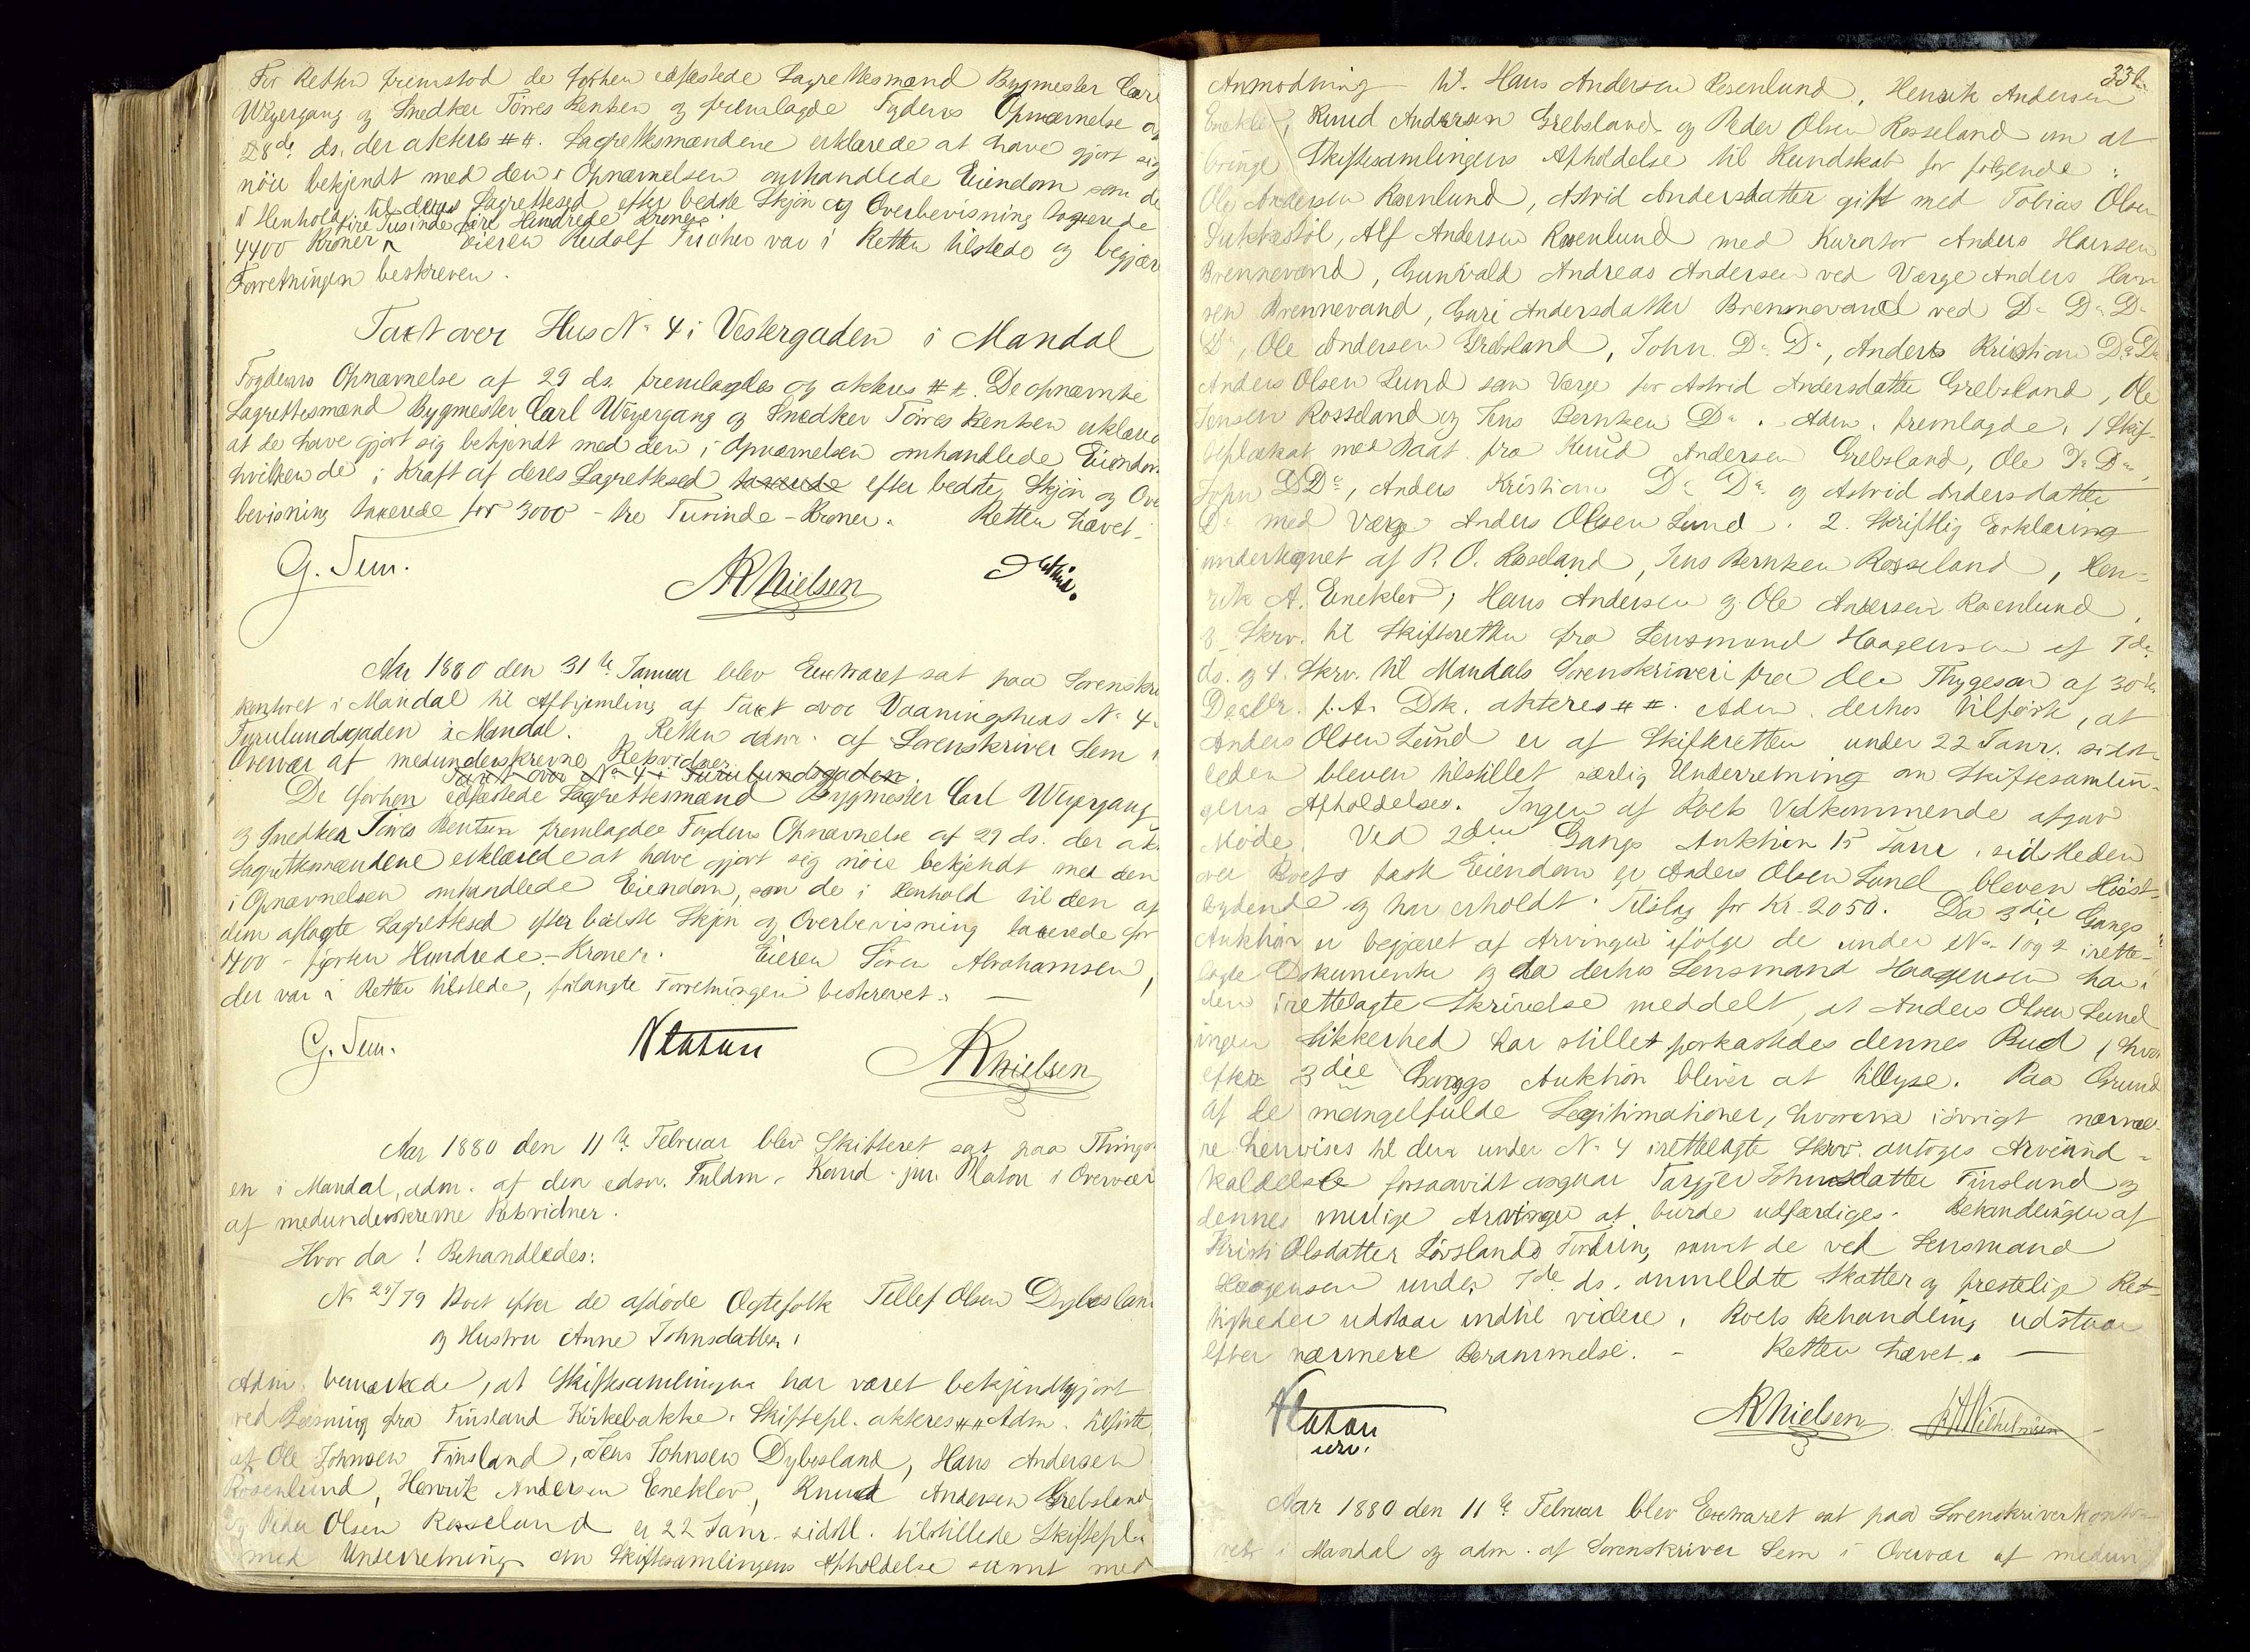 For Retten fremstod de forhen edfæstede Lagrettesmænd Bygmester Carl
Weyergang og Snedker Törres Bentsen og fremlagde Fogdens Opnævnelse af
28de ds. der akteres ##. Lagrettesmændene erklærede at have gjort sig
nöie bekjendt med den i Opnævnelsen omhandlede Eiendom som de
i Henhold til deres Lagrettesed efter bedste Skjön og Overbevisning taxerede
fire Tusinde fire Hundrede Kroner
4400 Kroner Eieren Rudolf Fischer var i Retten tilstede og begjær
Forretningen beskreven.
Taxt over Hus No 4 i Vestergaden i Mandal
Fogdens Opnævnelse af 29 ds. fremlagdes og akteres ##. De opnævnte
Lagrettesmænd Bygmester Carl Weyergang og Snedker Törres Bentsen erklære
at de have gjort sig bekjendt med den i Opnævnelsen omhandlede Eiendom
hvilken de i Kraft af deres Lagrettesed taxerede efter bedste Skjön og Ove
bevisning taxerede for 3000 - tre Tusinde - Kroner. Retten hævet.
G. Sem. ARNielsen
Aar 1880 den 31te Januar blev Extraret sat paa Sorenskri
kontoret i Mandal til Afhjemling af Taxt over Vaaningshus No 4
Furulundsgaden i Mandal. Retten adm. af Sorenskriver Sem i
Overvær af medunderskrevne Retsvidner
Taxt over No 4 i Furulundsgaden
De forhen edfæstede Lagrettesmænd Bygmester Carl Weyergang
og Snedker Törres Bentsen fremlagde Fogdens Opnævnelse af 29 ds. der ak.
Lagrettesmændene erklærede at have gjort sig nöie bekjendt med den
i Opnævnelsen omhandlede Eiendom, som de i Henhold til den af
dem aflagte Lagrettesed efter bedste Skjön og Overbevisning taxerede for
1400 - fjorten Hundrede - Kroner. Eieren Sören Abrahamsen,
der var i Retten tilstede, forlangte Forretningen beskrevet. —
G. Sem. Platou ARNielsen
Aar 1880 den 11te Februar blev Skifteret sat paa Things
en i Mandal, adm. af den edsv. Fuldm. Kand. jur. Platou i Overvær
af medunderskrevne Retsvidner.
Hvor da! Behandledes:
No 25/79 Boet efter de afdöde Ægtefolk Tellef Olsen Dybesland
og Hustru Anne Johnsdatter.
Adm. bemærkede, at Skiftesamlingen har været bekjendtgjort
ved Læsning fra Finsland Kirkebakke. Skiftepl. akteres ## Adm. tilförte
at Ole Johnsen Finsland, Jens Johnsen Dybesland, Hans Andersen
Rosenlund, Henrik Andersen Eneklev, Knud Andersen Grebsland
og Peder Olsen Rosseland er 22 Janr. sidstl. tilstillede Skiftepl.
med Underretning om Skiftesamlingens Afholdelse samt med
336.
Anmodning til Hans Andersen Rosenlund, Henrik Andersen
Eneklev, Knud Andersen Grebsland og Peder Olsen Rosseland om at
bringe Skiftesamlingens Afholdelse til Kundskab for fölgende:
Ole Andersen Rosenlund, Astrid Andersdatter gift med Tobias Olsen
Alf Andersen Rosenlund med Kurator Anders Hansen
Brennevand, Gunvald Andreas Andersen ved Værge Anders Han
sen Brennevand, Guri Andersdatter Brennevand ved Do Do Do
Do, Ole Andersen Grebsland, John Do Do, Anders Kristian Do Do
Anders Olsen Lund som Værge for Astrid Andersdatter Grebsland, Ole
Jensen Rosseland og Jens Berntsen Do. Adm. fremlagde: 1 Skif-
teplakat med Paat. fra Knud Andersen Grebsland, Ole Do Do,
John Do Do, Anders Kristian Do Do og Astrid Andersdatter
Do med Værge Anders Olsen Lund. 2. Skriftlig Erklæring
undertegnet af P. O. Rosseland, Jens Berntsen Rosseland, Hen-
rik A. Eneklev, Hans Andersen og Ole Andersen Rosenlund,
3 Skrv. til Skifteretten fra Lensmand Haagensen af 7de
ds. og 4. Skrv. til Mandals Sorenskriveri fra Ole Thygeson af 30te
Decbr. f. A. Dok. akteres ##. Adm. derhos tilförte, at
Anders Olsen Lund er af Skifteretten under 22 Janr. sidst-
leden bleven tilstillet særlig Underretning om Skiftesamlin-
gens Afholdelse. Ingen af Boets Vedkommende afgav
Möde. Ved 2den Gangs Auktion 15 Janr. sidstleden
over Boets faste Eiendom er Anders Olsen Lund bleven Höist-
bydende og har erholdt Tilslag for Kr. 2050. Da 3die Gangs
Auktion er begjæret af Arvinger ifölge de under No 1 og 2 irette-
lagte Dokumenter og da derhos Lensmand Haagensen har i
den irettelagte Skrivelse meddelt, at Anders Olsen Lund
ingen Sikkerhed har stillet forkastedes dennes Bud, hvor
efter 3die Gangs Auktion bliver at tillyse. Paa Grund
af de mangelfulde Legitimationer, hvorom iövrigt nærme-
re henvises til den under No 4 irettelagte Skrv. antoges Arveind-
kaldelse forsaavidt angaar Targjer Johnsdatter Finsland og
dennes mulige Arvinger at burde udfærdiges. Behandlingen af
Kristi Olsdatter Lövslands Fordring samt de ved Lensmand
Haagensen under 7de ds. anmeldte Skatter og præstelige Ret-
tigheder udstaar indtil videre. Boets Behandling udstaar
efter nærmere Berammelse. - Retten hævet. —
Platou ARNielsen Wilhelmsen
Aar 1880 den 11te Februar blev Extraret sat paa Sorenskriverkonto-
ret i Mandal og adm. af Sorenskriver Sem i Overvær af medun